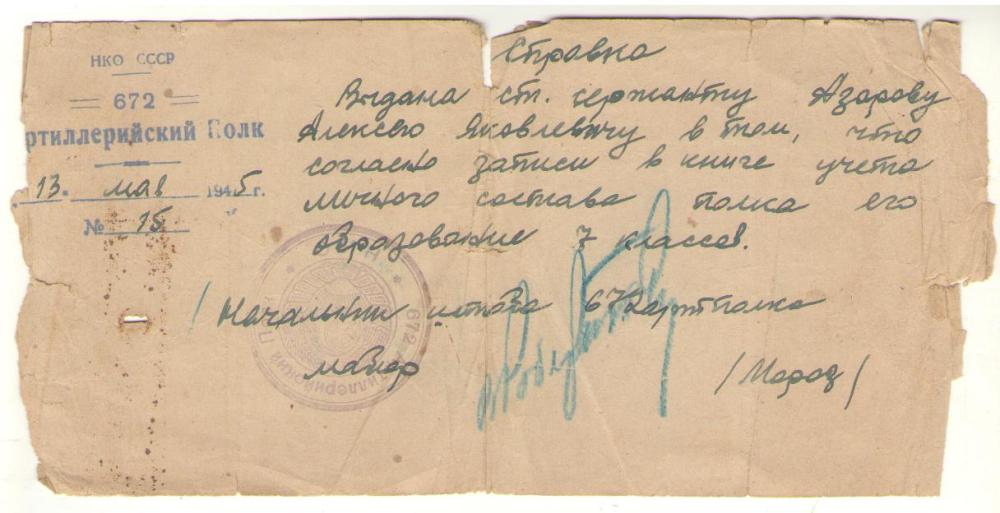 НКО СССР
672
ртиллерийский Полк
13 мая 1945 г.
№ 15
Справка
Выдана ст. сержанту Азарову
Алексею Яковлевичу в том, что
согласно записи в книге учета
личного состава полка его
образование 7 классов.
Начальник штаба 672 артполка
майор /Мороз/
672